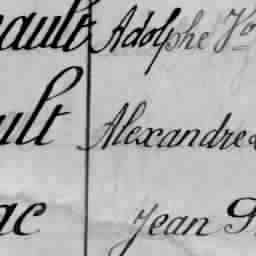 eault Adolphe
ult Alexandre
ac Jean